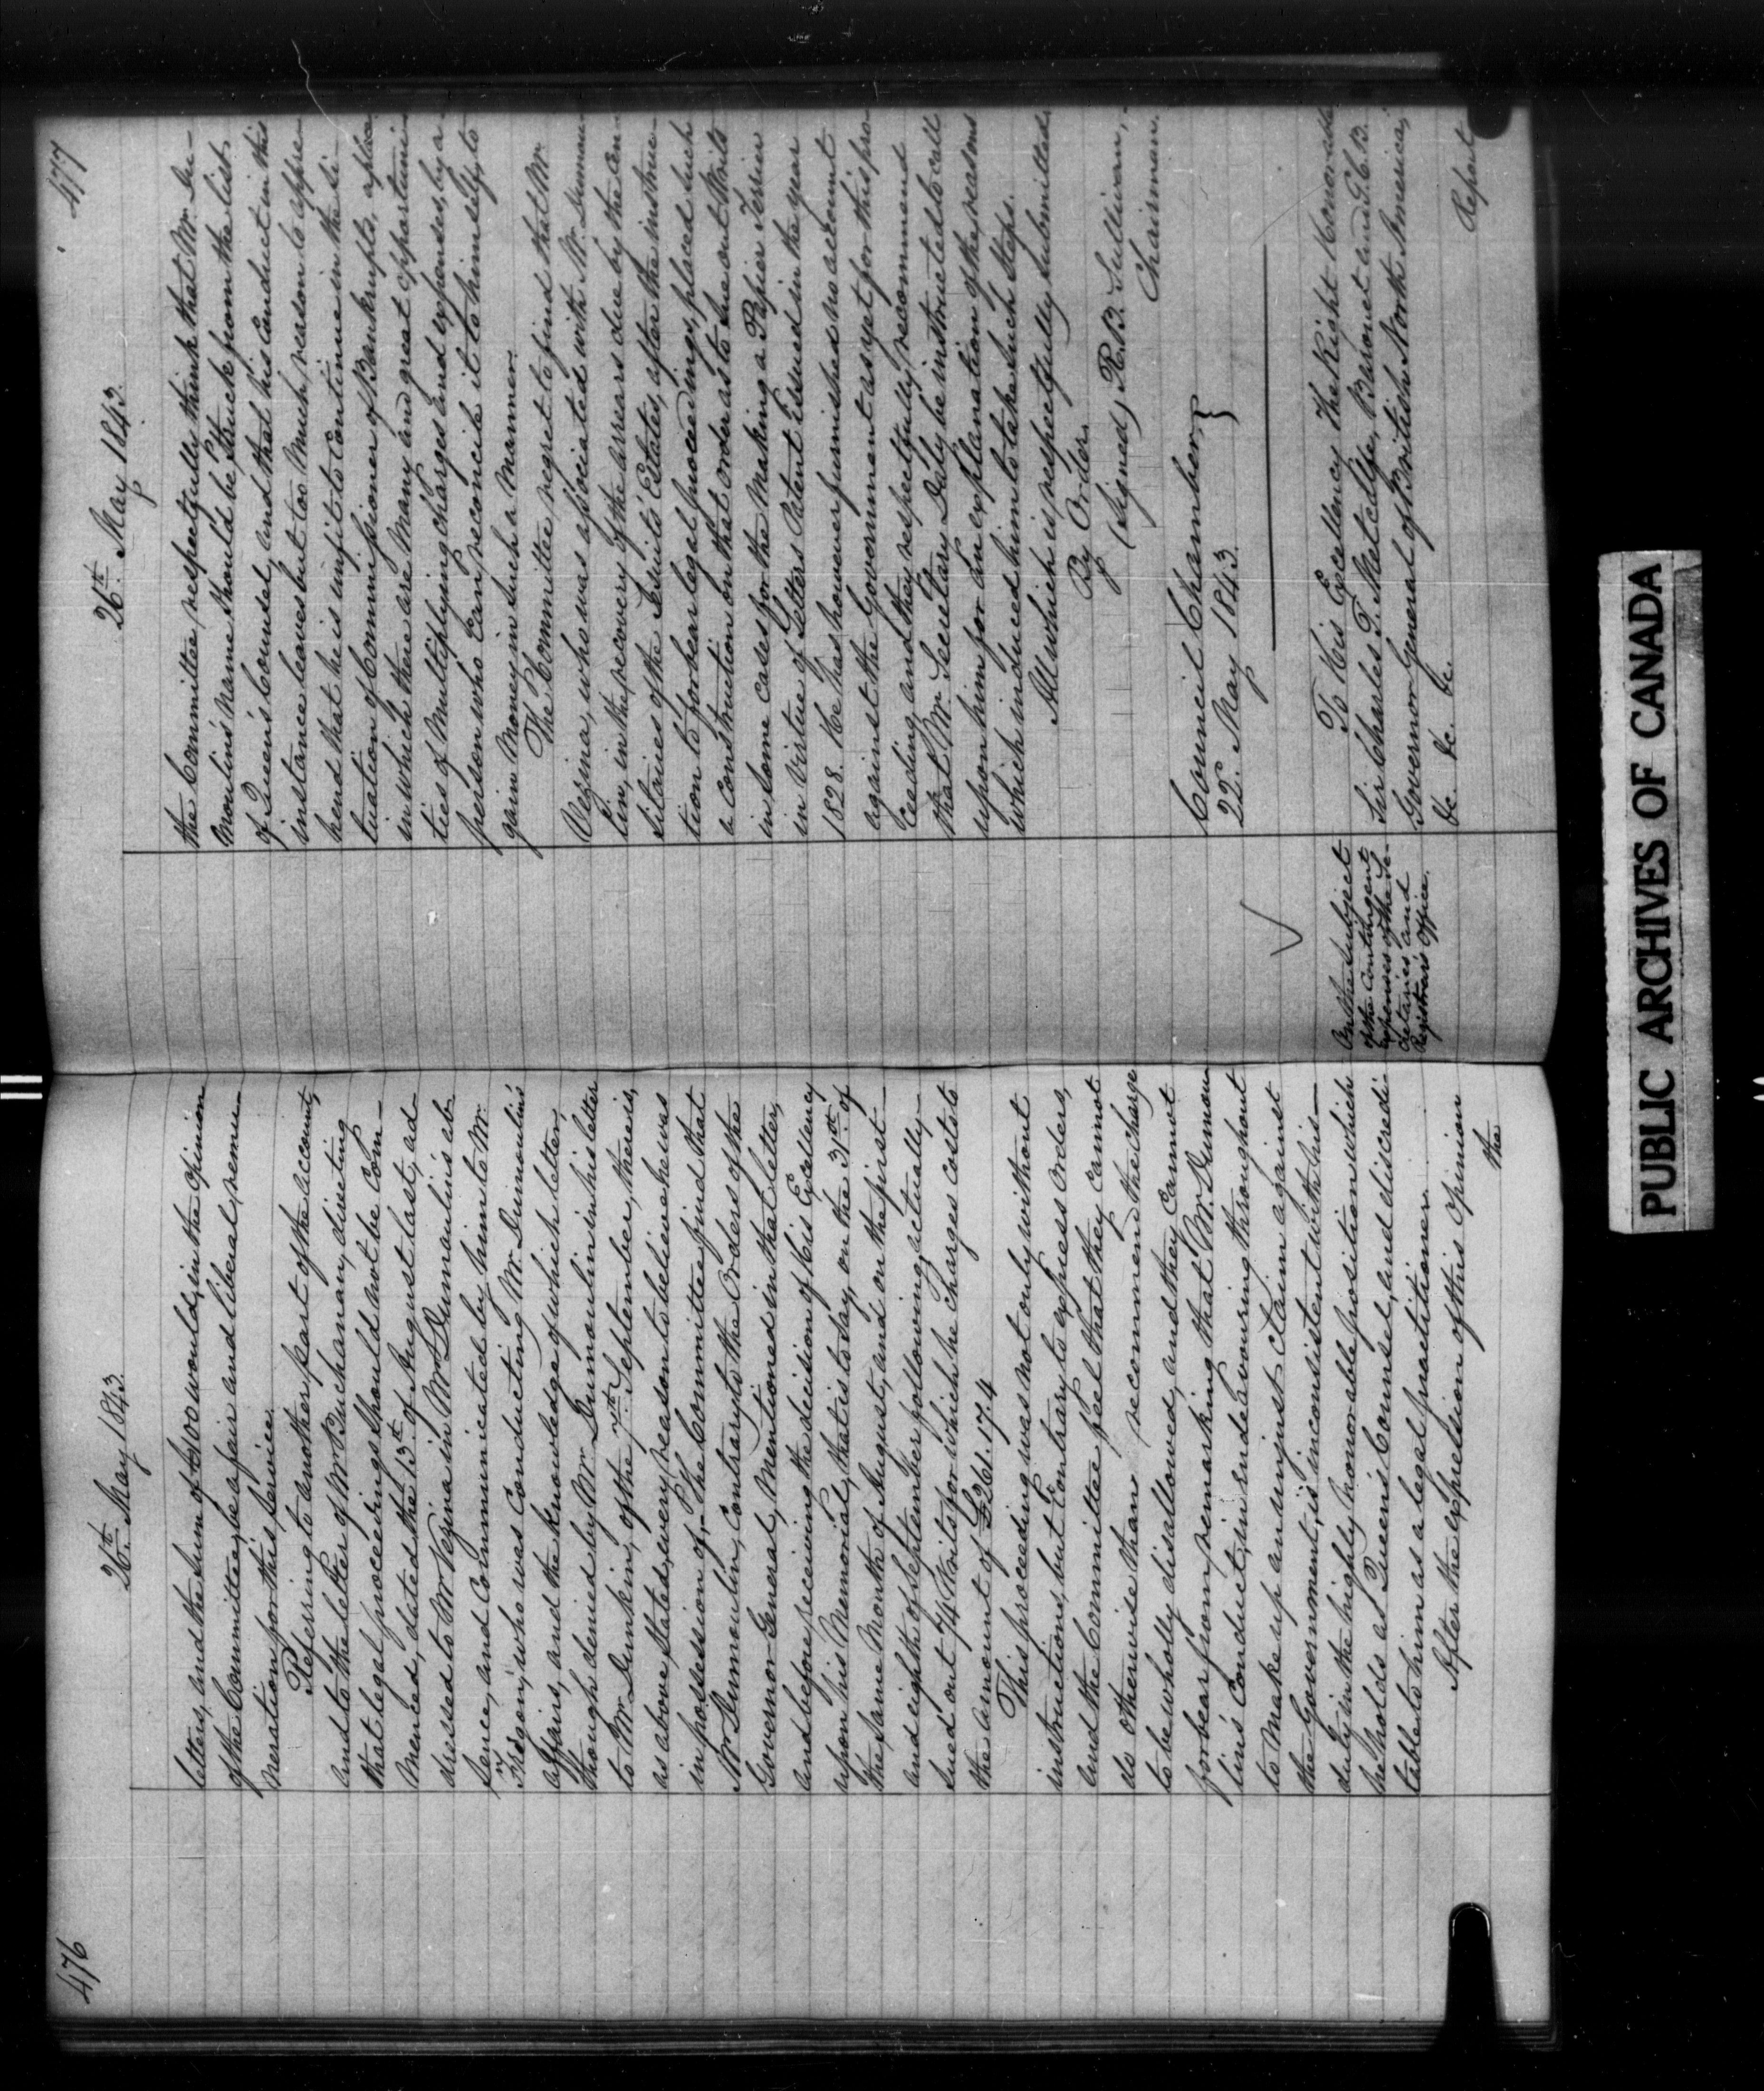 476
26th May 1843.
letters, and the Sum of £100 would, in the opinion
of the Committee, be a fair and liberal remu-
neration for this Service.
Referring to another part of the account,
and to the letter of Mr Buchanan, directing
that legal proceedings should not be Com-
menced, dated the 13th of August last, ad-
dressed to Mr Vezina in Mr Dumoulin's ab-
sence, and Communicated by him to Mr
Frigon, who was Conducting Mr. Dumoulin's
affairs, and the Knowledge of which letter,
though denied by Mr Dumoulin in his letter
to Mr Dunkin, of the 7th September, there is,
as above stated, every reason to believe he was
in possession of, The Committee find that
Mr Dumoulin, Contrary to the Orders of the
Governor General, Mentioned in that letter,
and before receiving the decision of His Excellency
upon his Memorial, that is to day, on the 31st of
the same Month of August, and on the first
and eighth of September following, actually
sued out 74 Writs for which he Charges Costs to
the amount of £261.17.4
This proceeding was not only without
instructions, but Contrary to express orders,
and the Committee feel that they Cannot
do otherwise than recommend the Charge
to be wholly disallowed, and they Cannot
forbear from remarking that Mr. Dumou-
lin's Conduct, in endeavouring throughout
to Make up an unjust Claim against
the Government, is inconsistent with his
duty in the highly honorable position which
he holds as Queen's Counsel, and discredi-
table to him as a legal practitioner.
After the expression of this opinion
the
477
26th May 1843.
the Committee respectfully think that Mr Du-
moulin's name should be struck from the list
of Queen's Counsel, and that his Conduct in this
instance leaves but too Much reason to appre-
hend that he is unfit to Continue in the Si-
tuation of Commissioner of Bankrupts, a place
in which there are Many and great opportuni-
ties of Multiplying charges and expenses, by a
person who Can reconcile it to himself, to
gain Money in Such a Manner.
The Committee regret to find that Mr.
Vezina, who was associated with Mr. Dumou-
lin, in the recovery of the arrears due by the Cen-
sitaires of the Jesuits' Estates, after the instruc-
tion to forbear legal proceedings, placed such
a Construction on that order as to Sue out Writs
in Some Cases for the Making a Papier Terrier
in Virtue of Letters Patent Issued in the year
1828. He has however furnished no account
against the Government as yet for this pro-
ceeding, and they respectfully recommend
that Mr Secretary Daly be instructed to call
upon him for an explanation of the reasons
which induced him to take Such Steps.
All which is respectfully submitted,
By Order.
(Signed) R. B. Sullivan,
Chairman.
Council Chamber, }
22. May 1843 }
On the Subject
of the Contingent
expenses of the Se-
cretaries and
Registrar's Office.
To His Excellency The Right Honorable
Sir Charles T. Metcalfe, Baronet and G.C.B.
Governor General of British North America,
&c. &c. &c.
Report
PUBLIC ARCHIVES OF CANADA